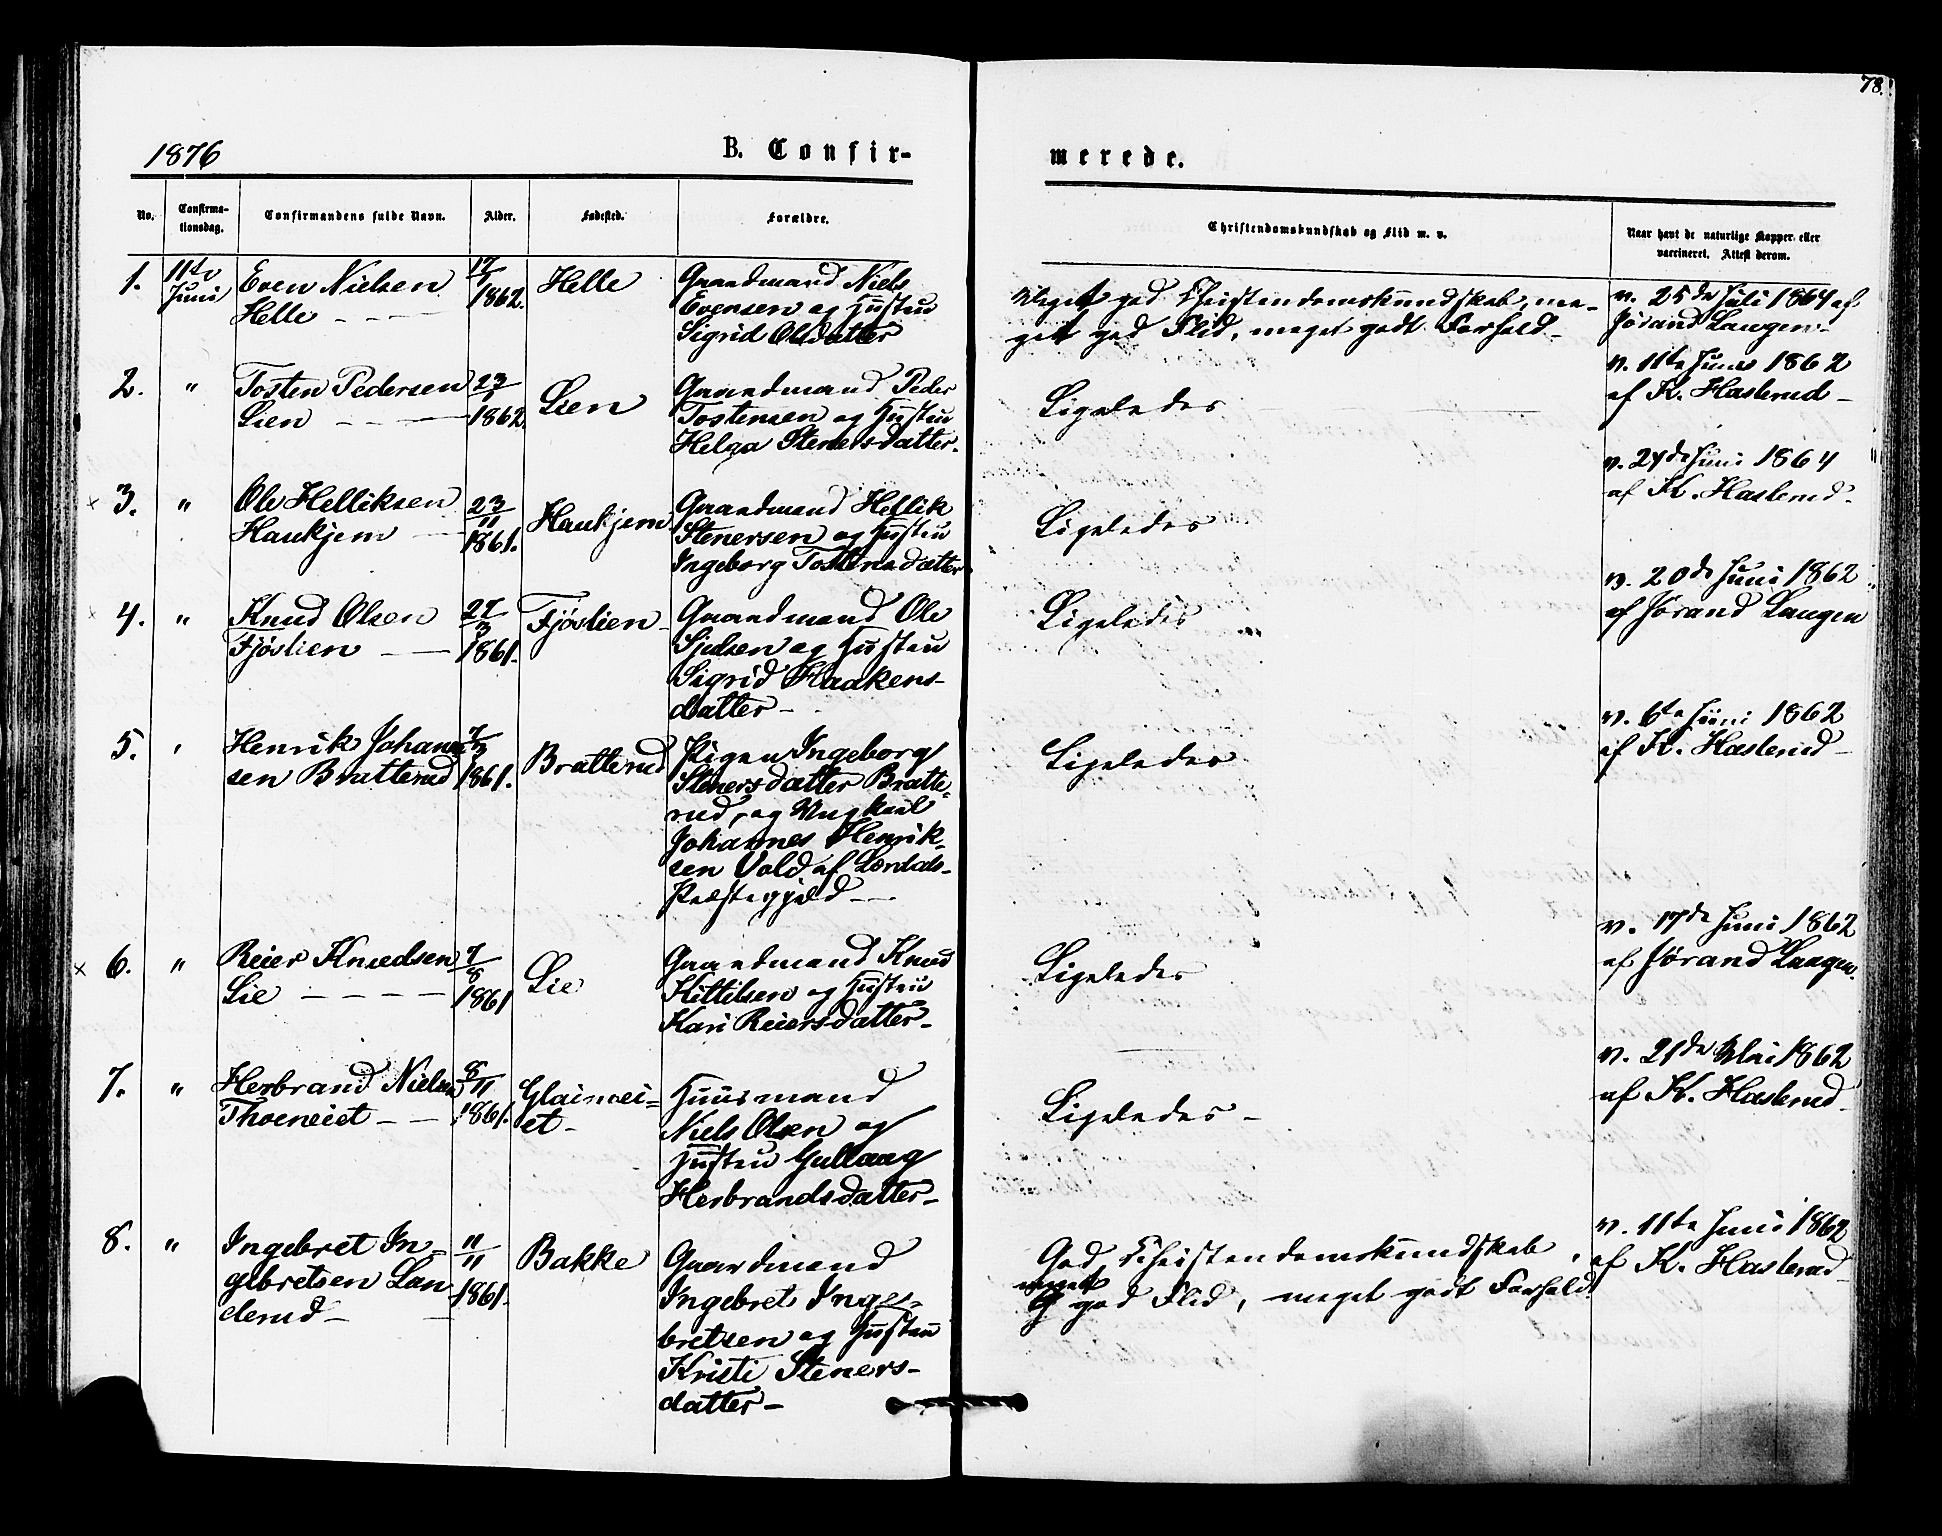 78.
1876
B. Confir-
merede.
No.
Confirma-
tionsdag.
Confirmandens fulde Navn.
Alder.
Fødested.
Forældre.
Christendomskundskab og Flid m. v.
Naar havt de naturlige Kopper eller
vaccineret. Attest derom.
1.
11te
Juni
Even Nielsen
Helle
1862.
Helle
Gaardmand Niels
Evensen og Hustru
Sigrid Olsdatter
Meget god Christendomskundskab, me-
get god Flid, meget godt Forhold
v. 25de Juli 1864 af
Jørand Laugen
2.
"
Tosten Pedersen
Lien
23/
1862
Lien
Gaardmand Peder
Tostensen og Hustru
Helga Stenersdatter.
Ligeledes
v. 11te Juni 1862
af K. Haslerud
× 3.
"
Ole Helliksen
Haukjem
23/11
1861.
Haukjem
Gaardmand Hellik
Stenersen og Hustru
Ingeborg Tostensdatter
Ligeledes
v. 24de Juni 1864
af K. Haslerud
× 4.
"
Knud Olsen
Fjøslien
27/3
1861.
Fjøslien
Gaardmand Ole
Sjulsen og Hustru
Sigrid Haakens-
datter
Ligeledes
v. 20de Juni 1862
af Jørand Laugen
5.
Henrik Johanne-
sen Bratterud
7/3
1861.
Bratterud
Pigen Ingeborg
Stenersdatter Bratte-
rud, og Ungkarl
Johannes Henrik-
sen Vold af Lærdals-
Præstegjeld
Ligeledes
v. 6te Juni 1862
af K. Haslerud
× 6.
"
Reier Knudsen
Lie
7/8
1861
Lie
Gaardmand Knud
Kittilsen og Hustru
Kari Reiersdatter
Ligeledes
v. 17de Juni 1862
af Jørand Laugen.
7.
"
Herbrand Nielsen
Thoeneiet
8/11
1861.
et
Huusmand
Niels Olsen og
Hustru Gullaug
Herbrandsdatter
Ligeledes
v. 21de Mai 1862
af K. Haslerud
8.
"
Ingebret In-
gebretsen Lan-
derud
11/11
1861.
Bakke
Gaardmand
Ingebret Inge-
bretsen og Hustru
Kristi Steners-
datter
God Christendomskundskab,
meget
god Flid, meget godt Forhold
v. 11te Juni 1862
af K. Haslerud